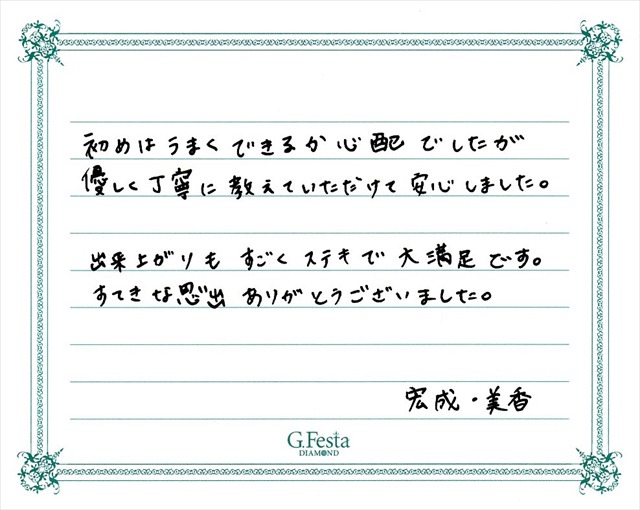 初めはうまくできるか心配でしたが
優しく丁寧に教えていただけて安心しました。
出来上がりもすごくステキで大満足です。
すてきな思出ありがとうございました。
宏成・美香
G.Festa
DIAMOND